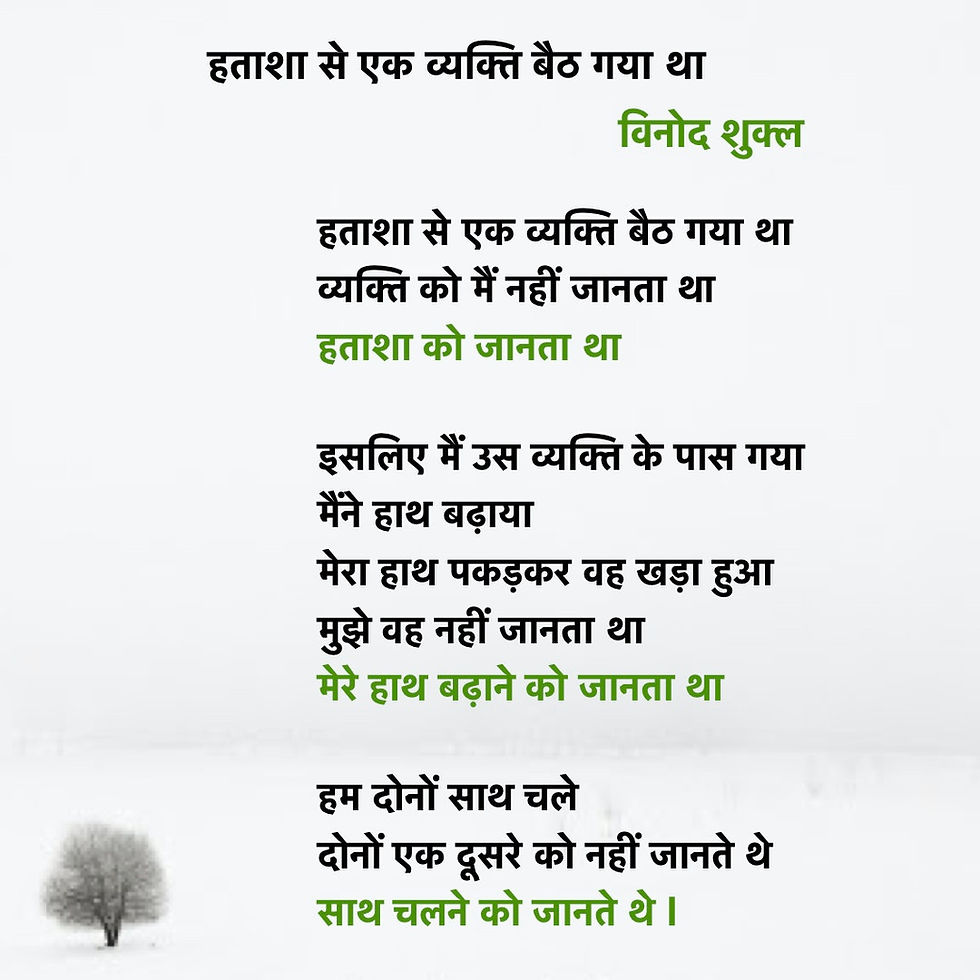 हताशा से एक व्यक्ति बैठ गया था
विनोद शुक्ल
हताशा से एक व्यक्ति बैठ गया था
व्यक्ति को मैं नहीं जानता था
हताशा को जानता था
इसलिए मैं उस व्यक्ति के पास गया
मैंने हाथ बढ़ाया
मेरा हाथ पकड़कर वह खड़ा हुआ
मुझे वह नहीं जानता था
मेरे हाथ बढ़ाने को जानता था
हम दोनों साथ चले
दोनों एक दूसरे को नहीं जानते थे
साथ चलने को जानते थे ।